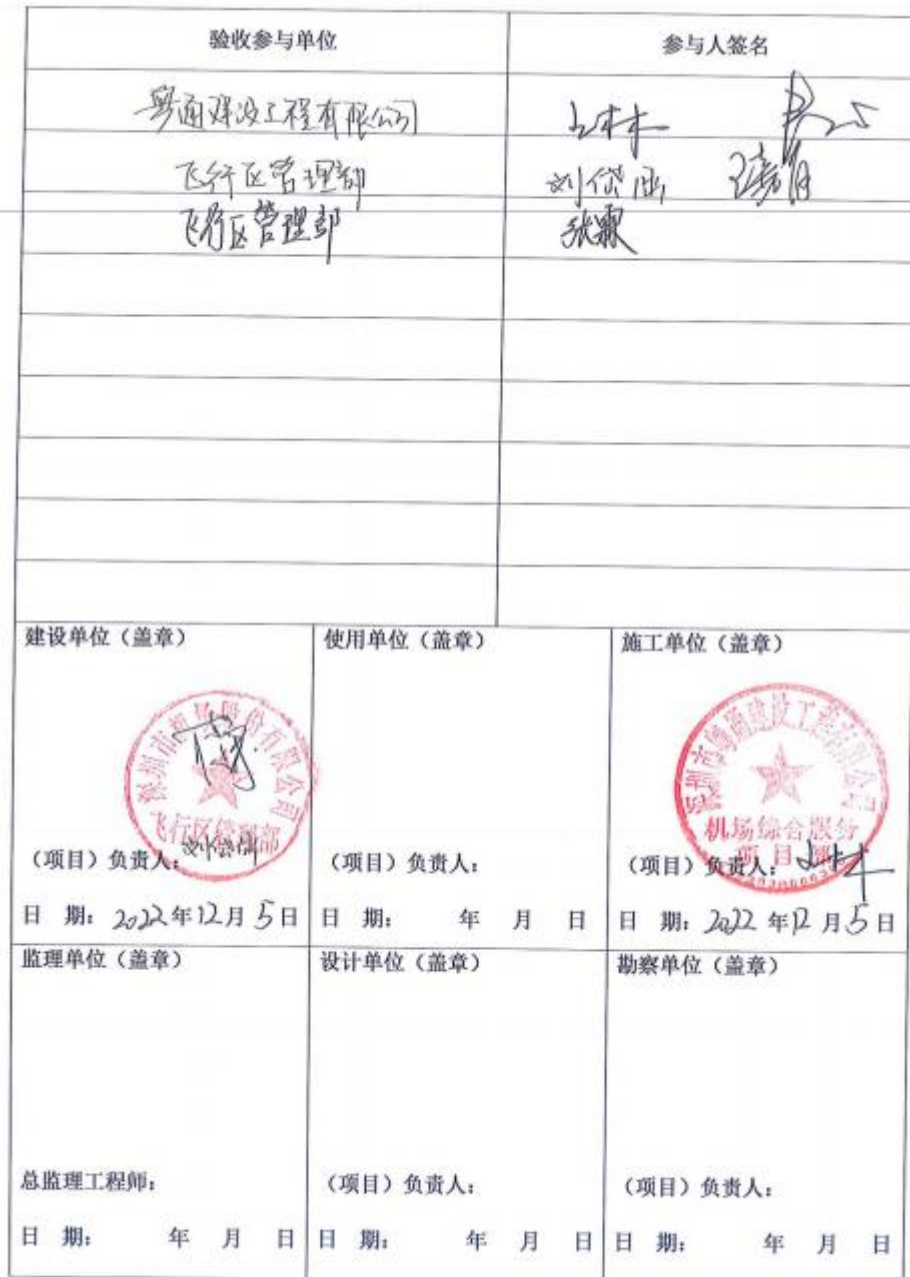 验收参与单位 参与人签名
粤通建设工程有限公司
飞行区管理部 刘岱
飞行区管理部 张霖
建设单位（盖章） 使用单位（盖章） 施工单位（盖章）
深圳市机场股份有限公司 深圳市粤通建设工程有限公司
飞行区管理部 机场综合服务
项目部
（项目）负责人： （项目）负责人： （项目）负责人：
日 期：2022年12月5日 日 期： 年 月 日 日 期：2022年12月5日
监理单位（盖章） 设计单位（盖章） 勘察单位（盖章）
总监理工程师： （项目）负责人： （项目）负责人：
日 期： 年 月 日 日 期： 年 月 日 日 期： 年 月 日